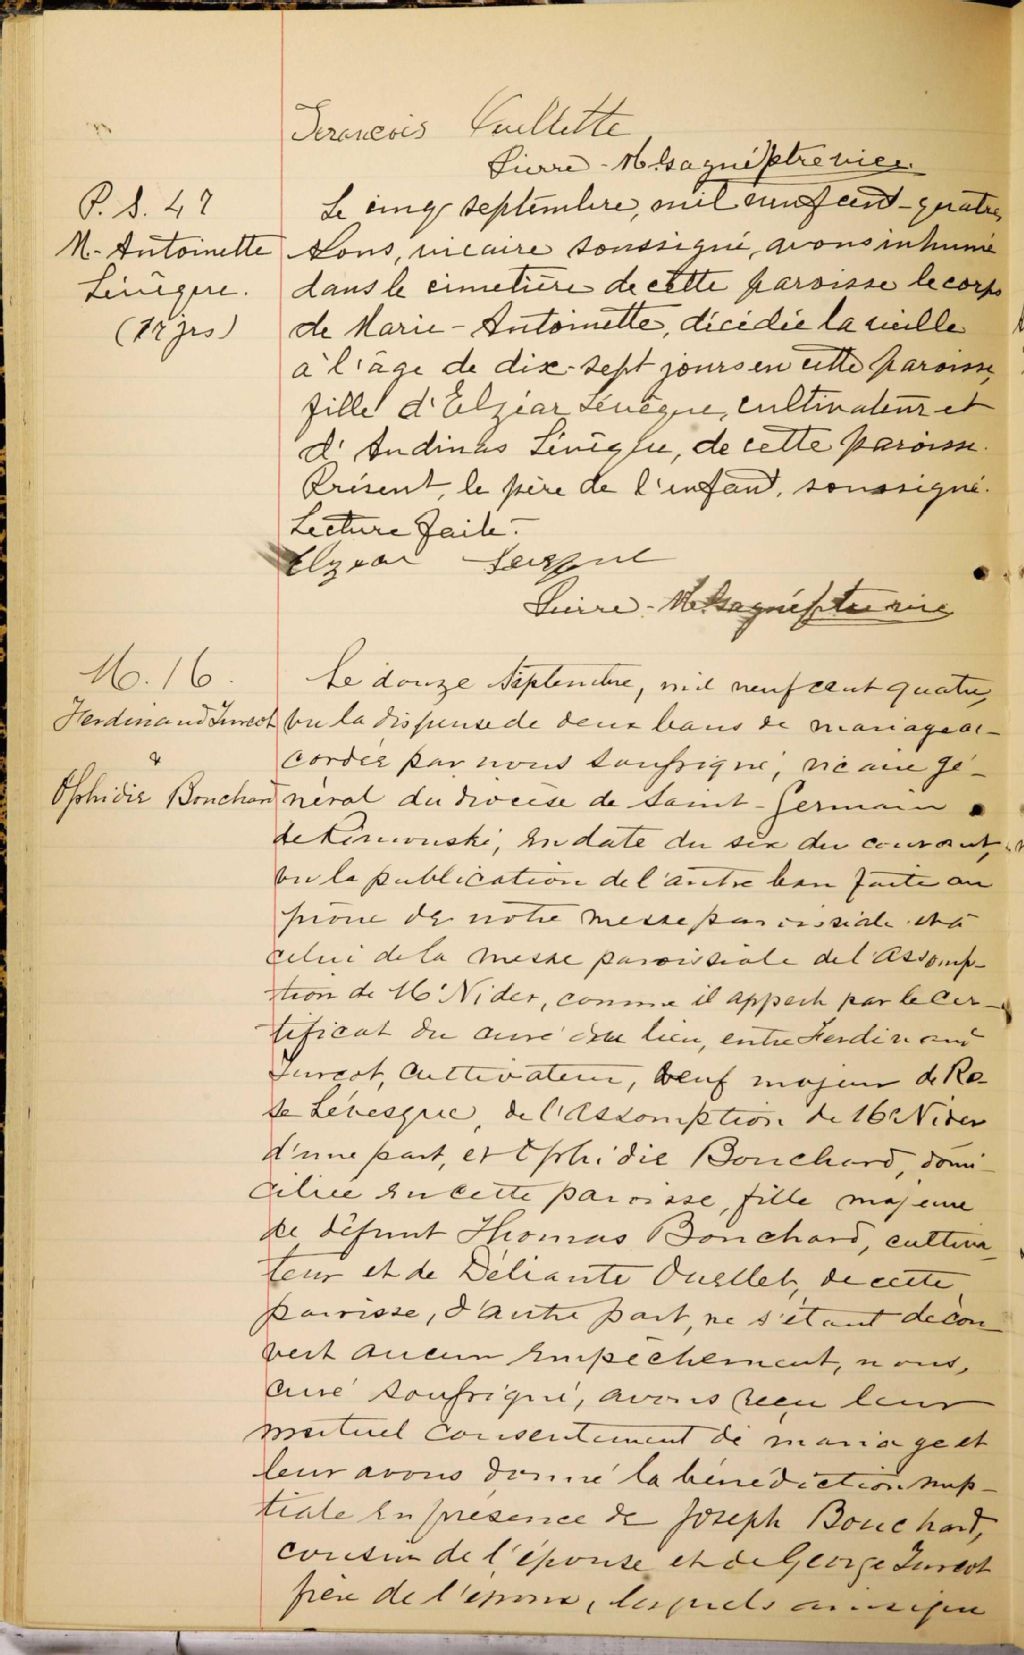 François Ouellette
Pierre - M. Gagné ptre vice.
P. S. 47
M.- Antoinette
Lévêque.
(17 jrs)
Le cinq septembre, mil neuf cent-quatre,
Nous, vicaire soussigné, avons inhumé
dans le cimetière de cette paroisse le corps
de Marie-Antoinette, décédée la veille
à l'âge de dix-sept jours en cette paroisse,
fille d'Elzéar Lévêque, cultivateur et
d'Andinas Lévêque, de cette paroisse.
Présent, le père de l'enfant, soussigné.
Lecture faite.-
Elzear
Pierre - M. Gagné ptre vice
M. 16.
Ferdinand Turcot
&
Ophidie Bouchard
Le douze Septembre, mil neuf cent quatre,
vu la dispense de deux bans de mariage ac-
cordée par nous soussigné, vicaire gé-
néral du diocèse de Saint-Germain
de Rimouski, en date du six du courant,
vu la publication de l'autre ban faite au
prône de notre messe paroissiale et à
celui de la messe paroissiale de l'Assomp-
tion de McNider, comme il appert par le cer-
tificat du curé du lieu, entre Ferdinand
Turcot, cultivateur, veuf majeur de Ro-
se Lévesque, de l'Assomption de McNider
d'une part, et Ophidie Bouchard, domi-
ciliée en cette paroisse, fille majeure
de défunt Thomas Bouchard, cultiva-
teur et de Déliante Ouellet, de cette
paroisse, d'autre part, ne s'étant décou-
vert aucun empêchement, nous,
curé soussigné, avons reçu leur
mutuel consentement de mariage et
leur avons donné la bénédiction nup-
tiale en présence de Joseph Bouchard,
cousin de l'épouse et de George Turcot
frère de l'époux, lesquels ainsi que